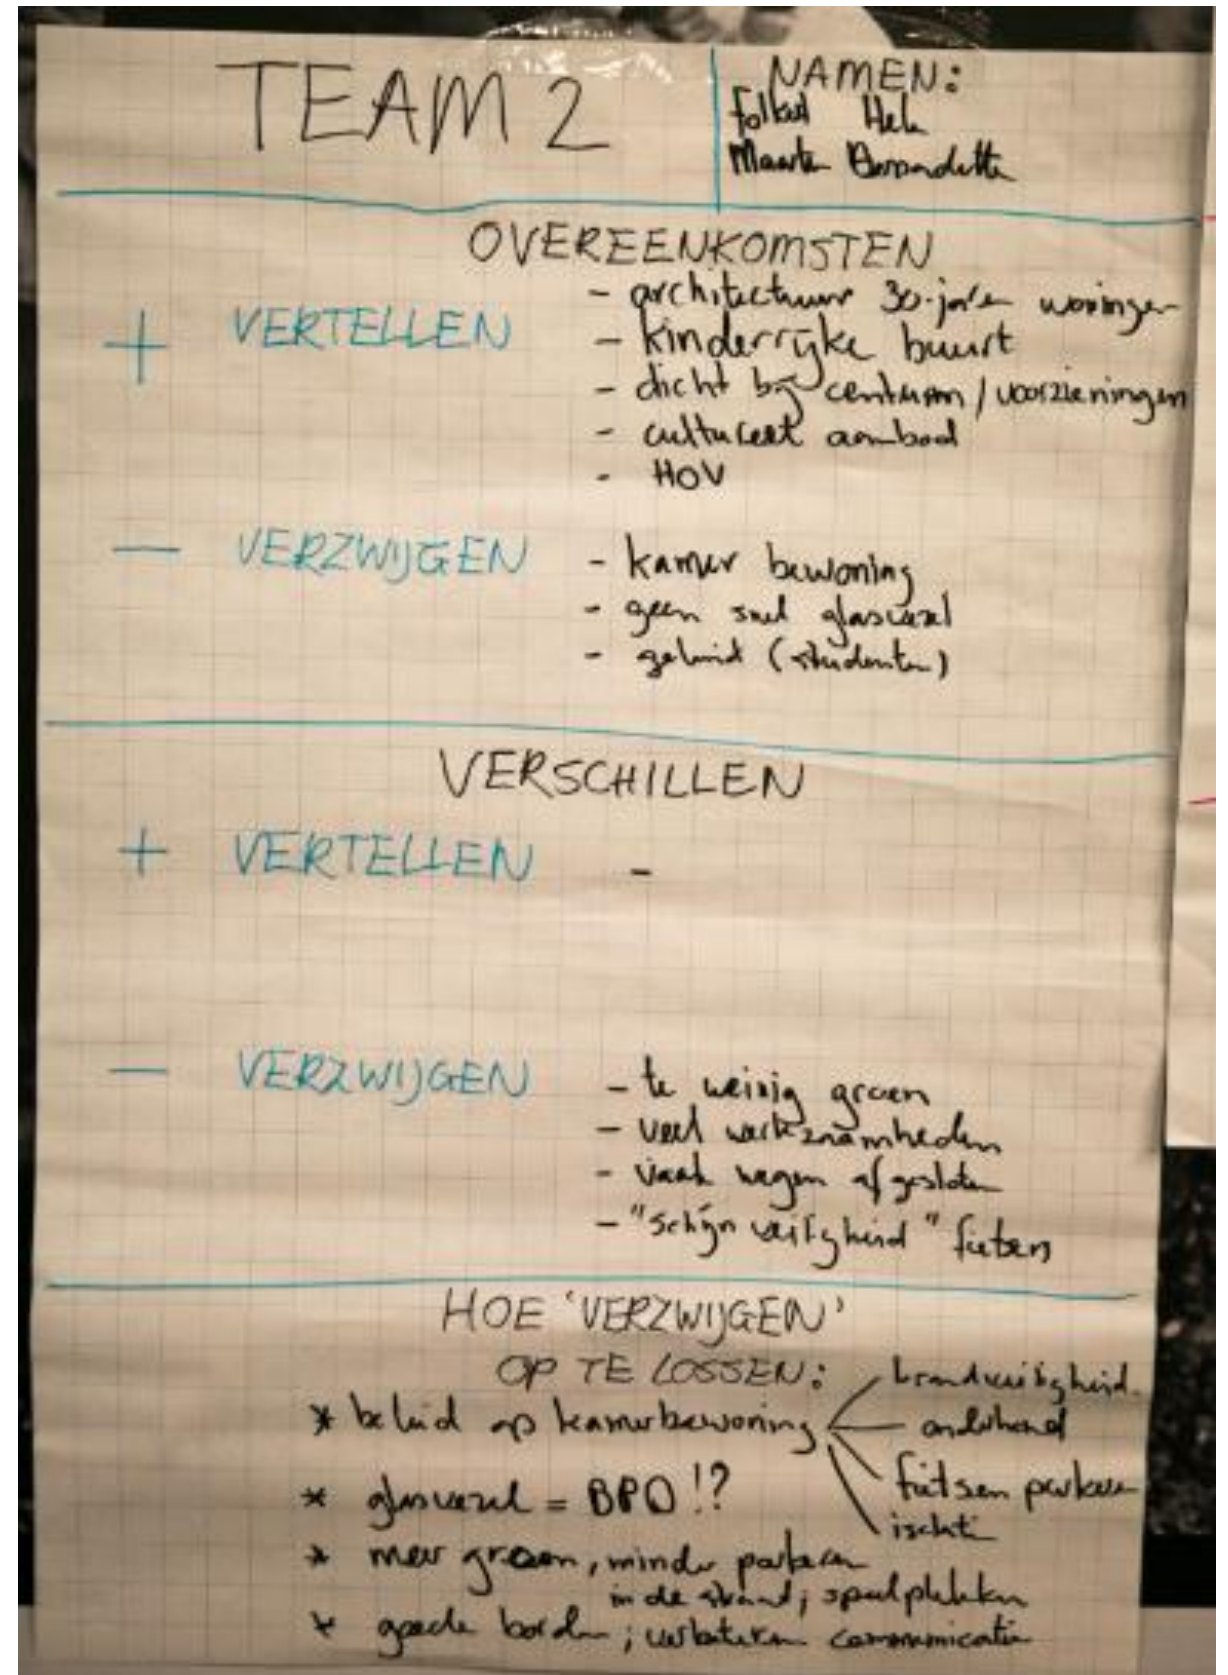 TEAM 2
NAMEN:
Folkert Hele
Maarten Bernadette
OVEREENKOMSTEN
+ VERTELLEN
- architectuur 30-jaren woningen
- kinderrijke buurt
- dicht bij centrum / voorzieningen
- cultureel aanbod
- HOV
- VERZWIJGEN
- kamer bewoning
- geen snel glasvezel
- geluid (studenten)
VERSCHILLEN
+ VERTELLEN -
- VERZWIJGEN
- te weinig groen
- veel werkzaamheden
- vaak wegen afgesloten
- "schijn veiligheid" fietsers
HOE 'VERZWIJGEN'
OP TE LOSSEN:
* beleid op kamerbewoning
brandveiligheid
onderhoud
fietsen parkeren
isolatie
* glasvezel = BPO!?
* meer groen, minder parkeren
in de straat; speelplekken
* goede borden; verbeteren communicatie